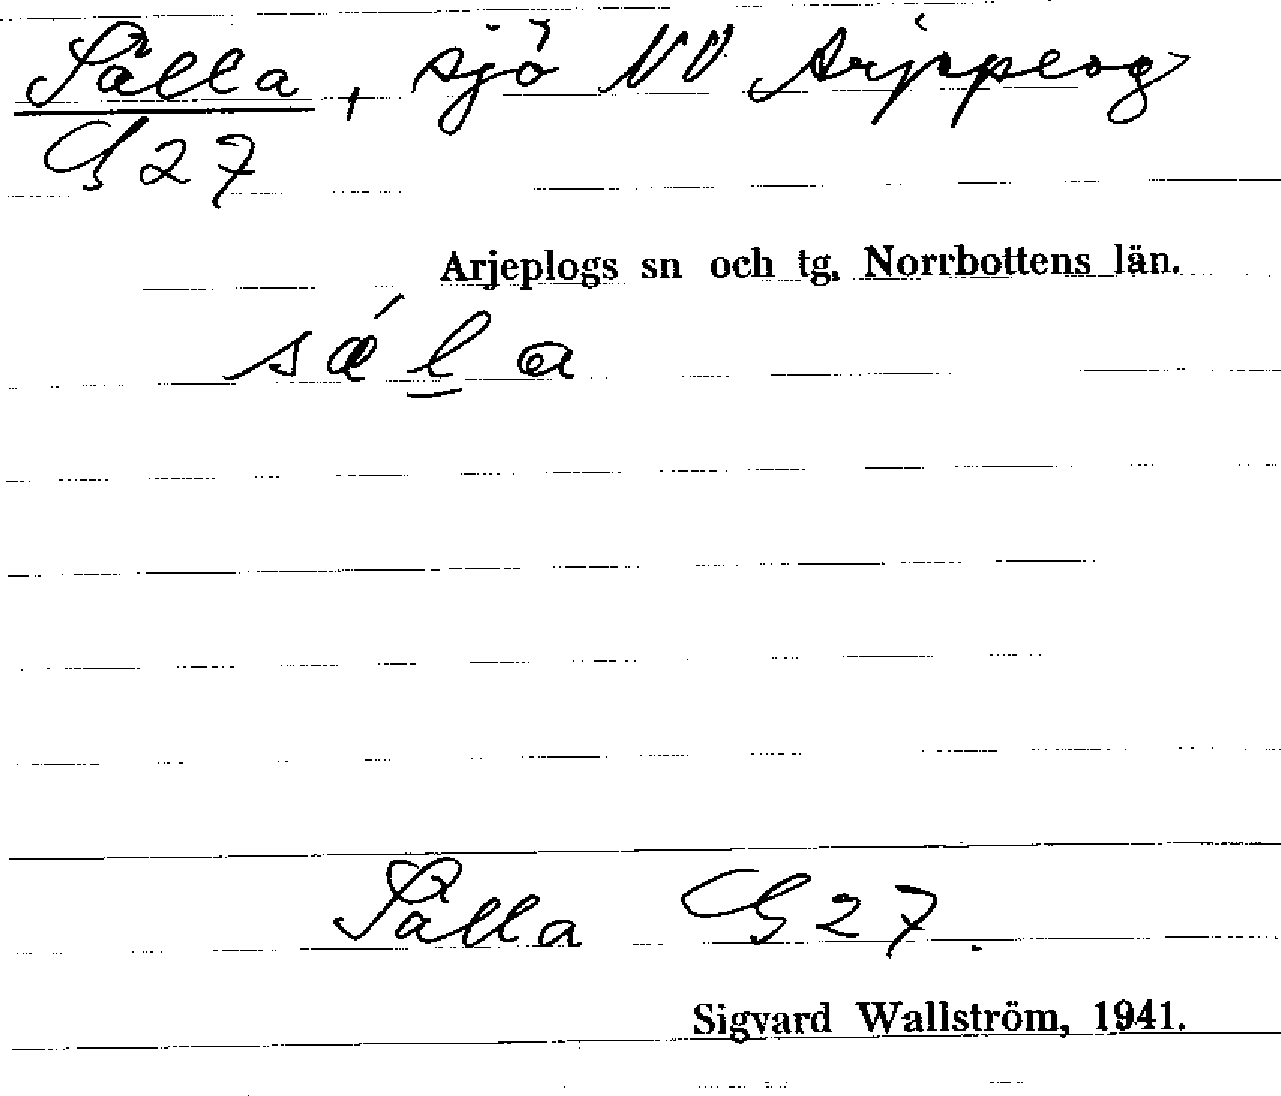 Sålla, sjö NV Arjeplog
G 27
Arjeplogs sn och tg. Norrbottens län.
Sålla G 27.
Sigvard Wallström, 1941.